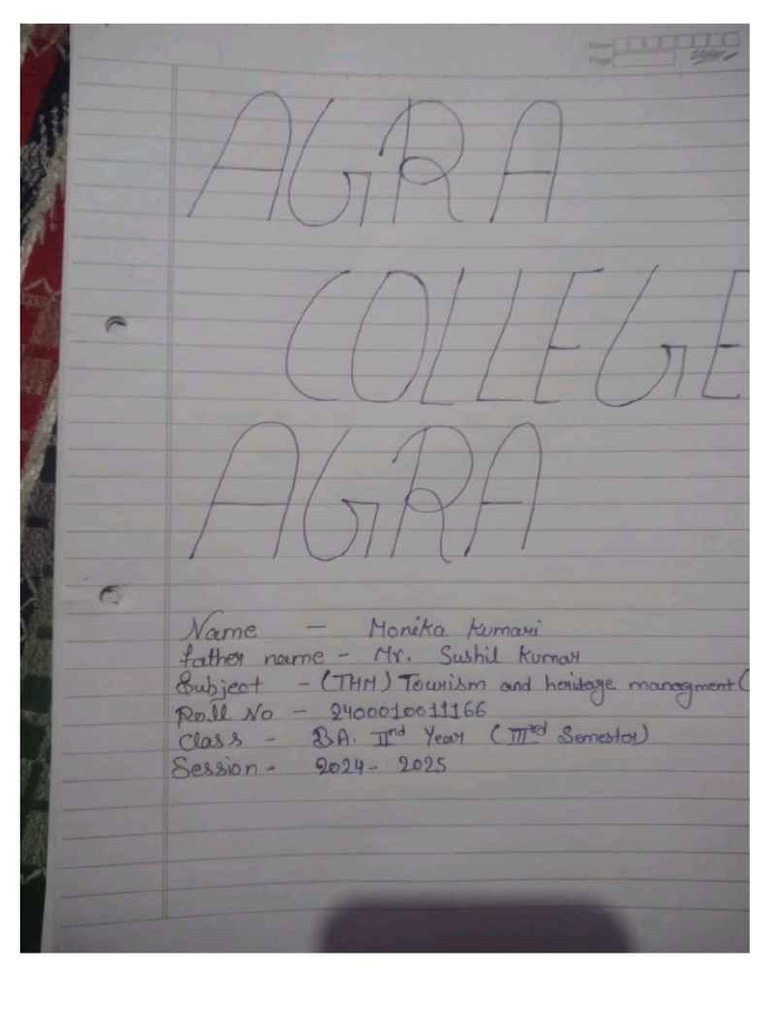 Date
Page
AGRA
COLLEGE
AGRA
Name - Monika Kumari
father name - Mr. Sushil Kumar
Subject - (THM) Tourism and heritage managment (
Roll No - 2400010011166
Class - BA. IInd Year (IIIrd Semestor)
Session - 2024 - 2025